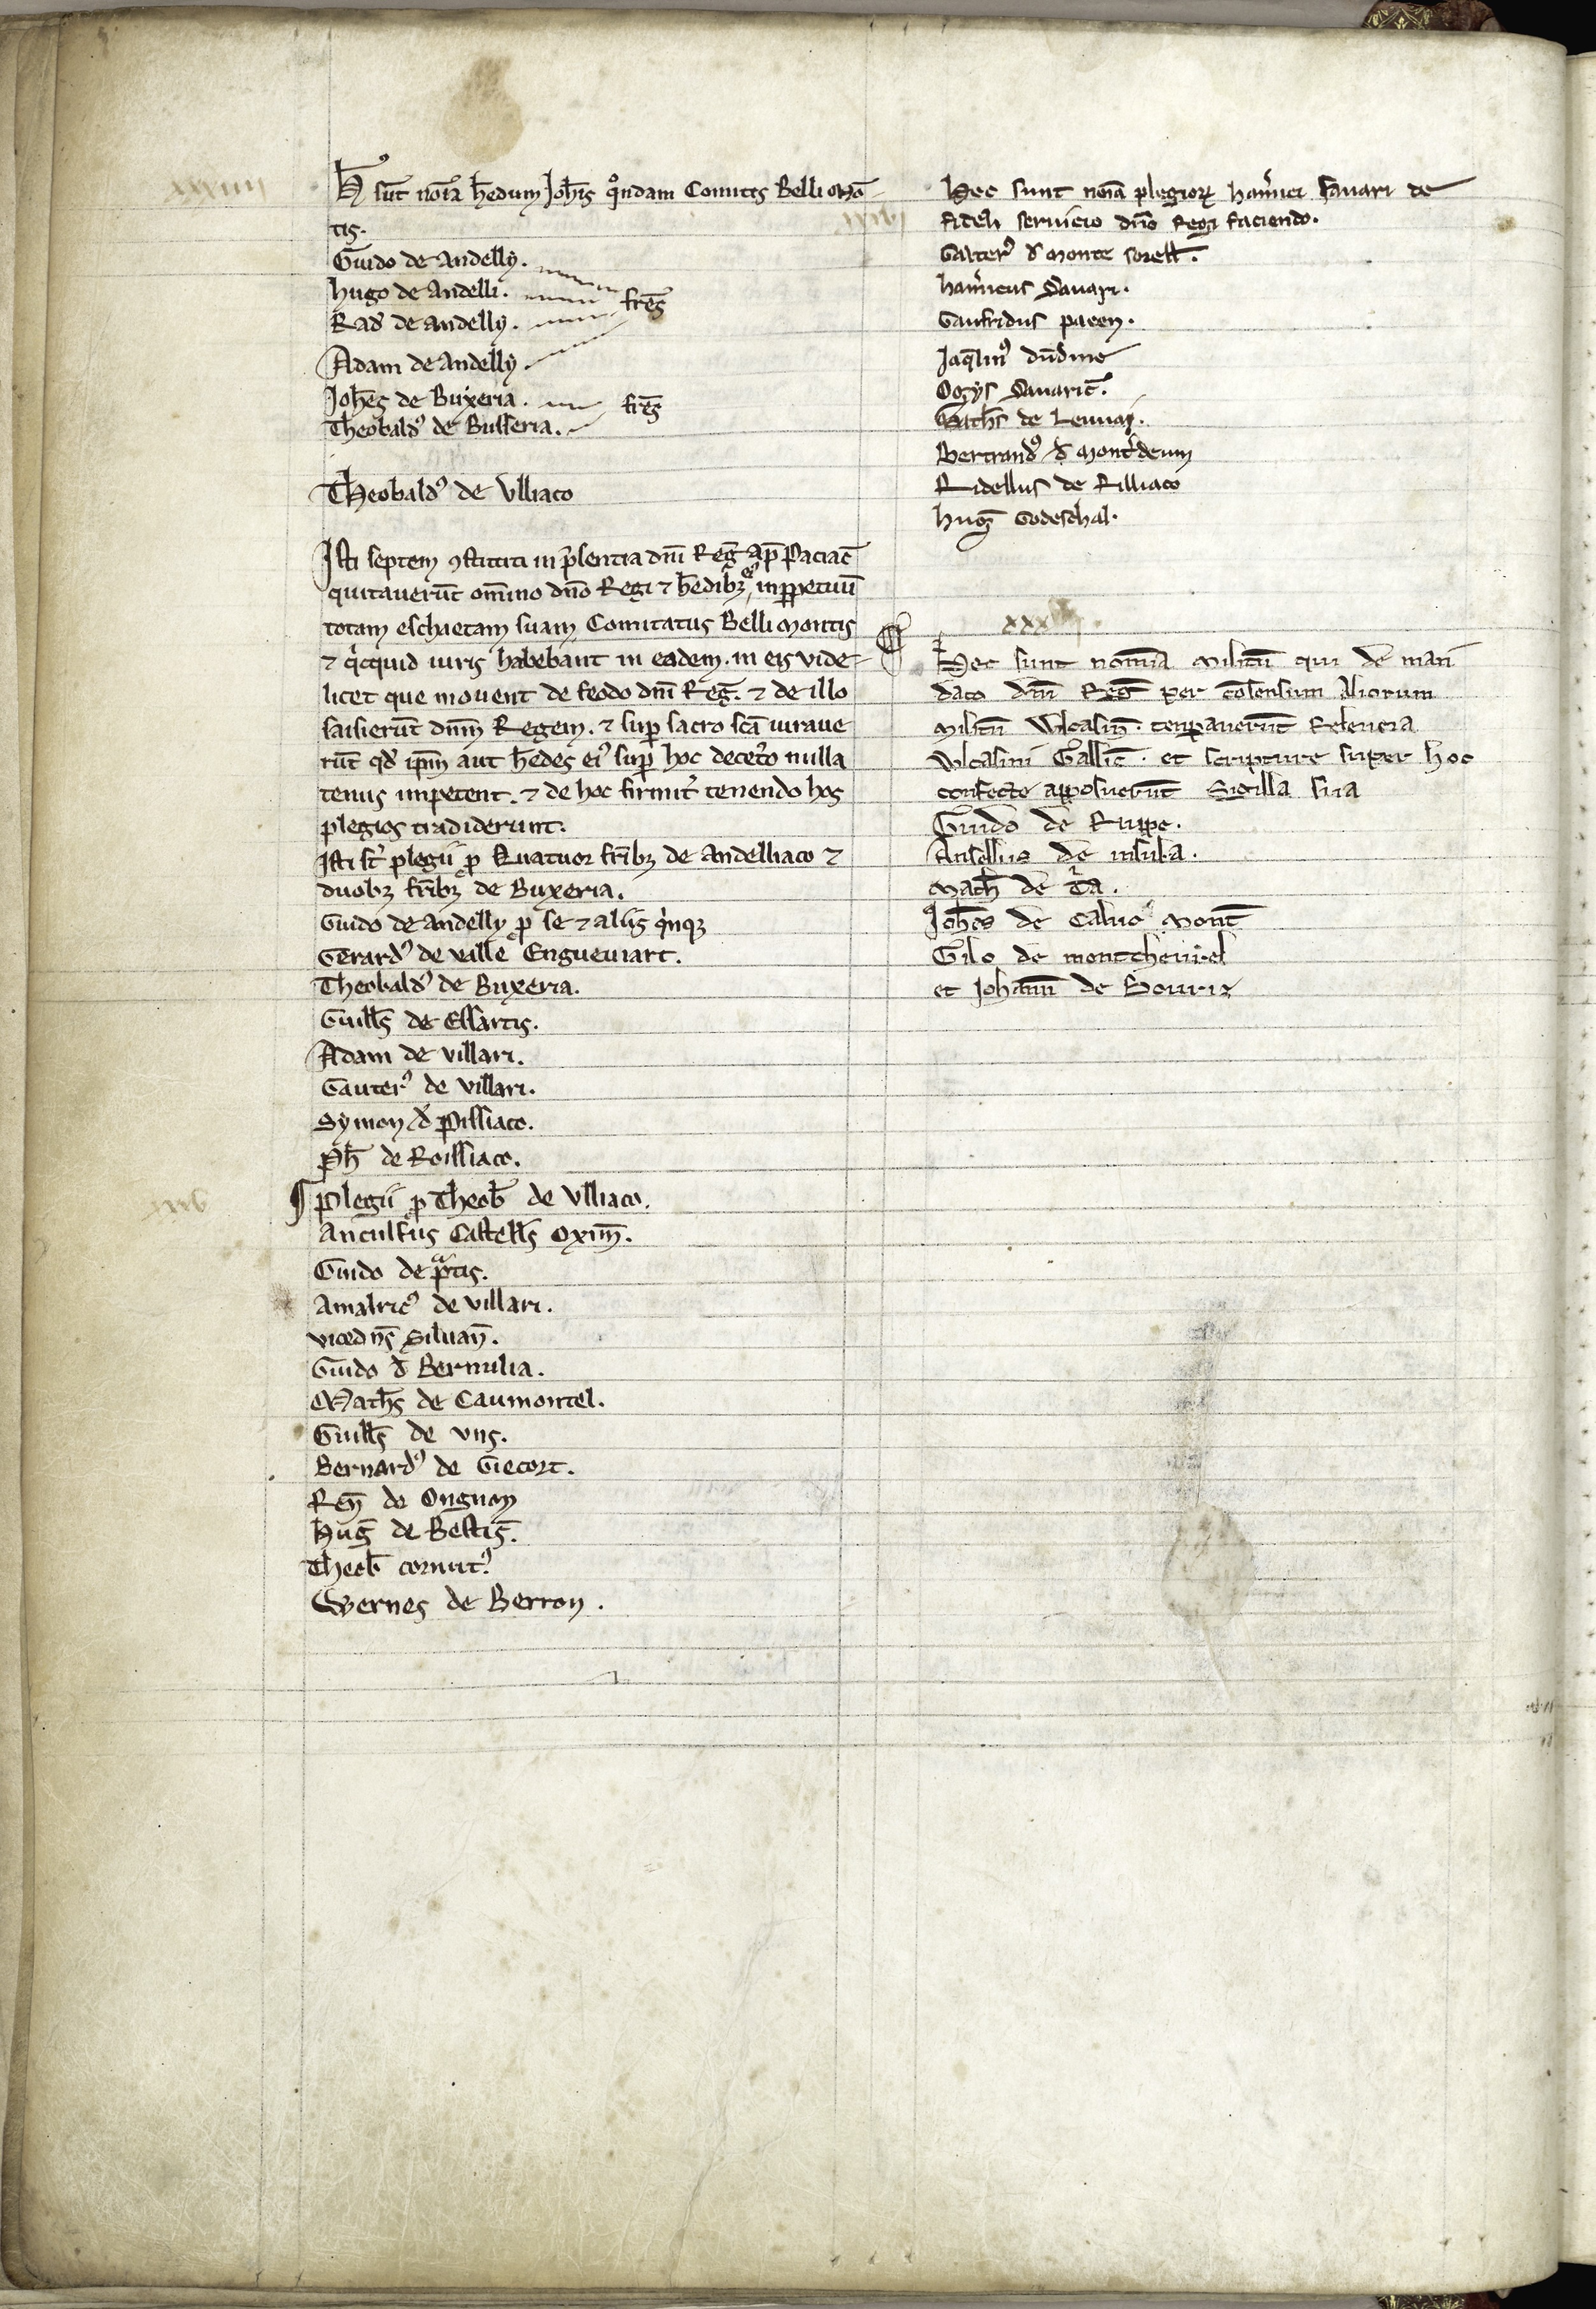 H̾ sūt nōīa h̄edum Joh̄is q̊ndam Comitis Belli mō-
tis.
Guido de Andelly.
hugo de Andelli.
Rad̾ de Andelly.
fr̄es
Adam de Andelly.
Joh̄es de Buxeria.
fr̄es
Theobaldꝰ de Busseria.
Theobaldꝰ de Ulliaco
Isti septem ꝯstituti in p̄sentia dn̄i Reḡ ap̄ Paciac̄
quitauerūt om̄ino dn̄o Regi ⁊ h̄edibꝫ eiꝰ inꝑpetuū
totam eschaetam suam Comitatus Belli montis
⁊ qͥcquid iuris habebant in eadem. in eis vide-
licet que mouent de feodo dn̄i Reḡ. ⁊ de illo
saisierūt dn̄m Regem. ⁊ suꝑ sacro scā iuraue
rūt qd̾ ip̄m aut h̄edes eiꝰ suꝑ hoc decet̾o nulla
tenus impetent. ⁊ de hoc firmit̾ tenendo hos
plegios tradiderunt.
Isti st̾ plegii ꝓ Quatuor fr̄ibꝫ de Andelliaco ⁊
duobꝫ fr̄ibꝫ de Buxeria.
Guido de Andelly ꝓ se ⁊ aliis qͥnqꝫ
Gerardꝰ de valle Engueuiart.
Theobaldꝰ de Buxeria.
Guill̄s de Essartis.
Adam de villari.
Gauterꝰ de villari.
Symon d̾ Pissiaco.
Ph̄ de Roissiaco.
¶ Plegii ꝓ Theob̄ de Ulliaco.
Anculfus Castell̄s Oxim̄.
Guido de pͣtis.
Amalricꝰ de villari.
vicedn̄s Siluan̄.
Guido d̾ Bernulia.
Math̄s de Caumontel.
Guill̄s de vns.
Bernardꝰ de Giecort.
Ren̄ de Onguon
Huḡ de Bestis̄.
Theob̄ cornutꝰ
Wernes de Berron.
Hec sunt nōīa plegioꝝ ham̾ici sauari de
fideli seruicio dn̄o Regi faciendo.
Galterꝰ d̾ Monte sorell̄.
ham̾icus Sauari.
Gaufridus pacen.
Jaq̄linꝰ
Ogys Sauaric̄.
Bertrandꝰ d̾
Ridellus de Rilliaco
huḡ Godeschal.
xxx
Hec sunt nomīa militū qui de man
dato dn̄i Reḡ per cōsensum aliorum
militū Wlcasin̄. temꝑauerūt Releueia
Wlcasini Gallic̄. et scripture super hoc
confecte apposuerūt Sigilla sua
Guido de Ruppe.
Ansellus de insula.
Math̄ de T̾a.
Joh̄es de Caluo Mont̄
Gilo de montcheurel
et Johann̄ de Bouriz